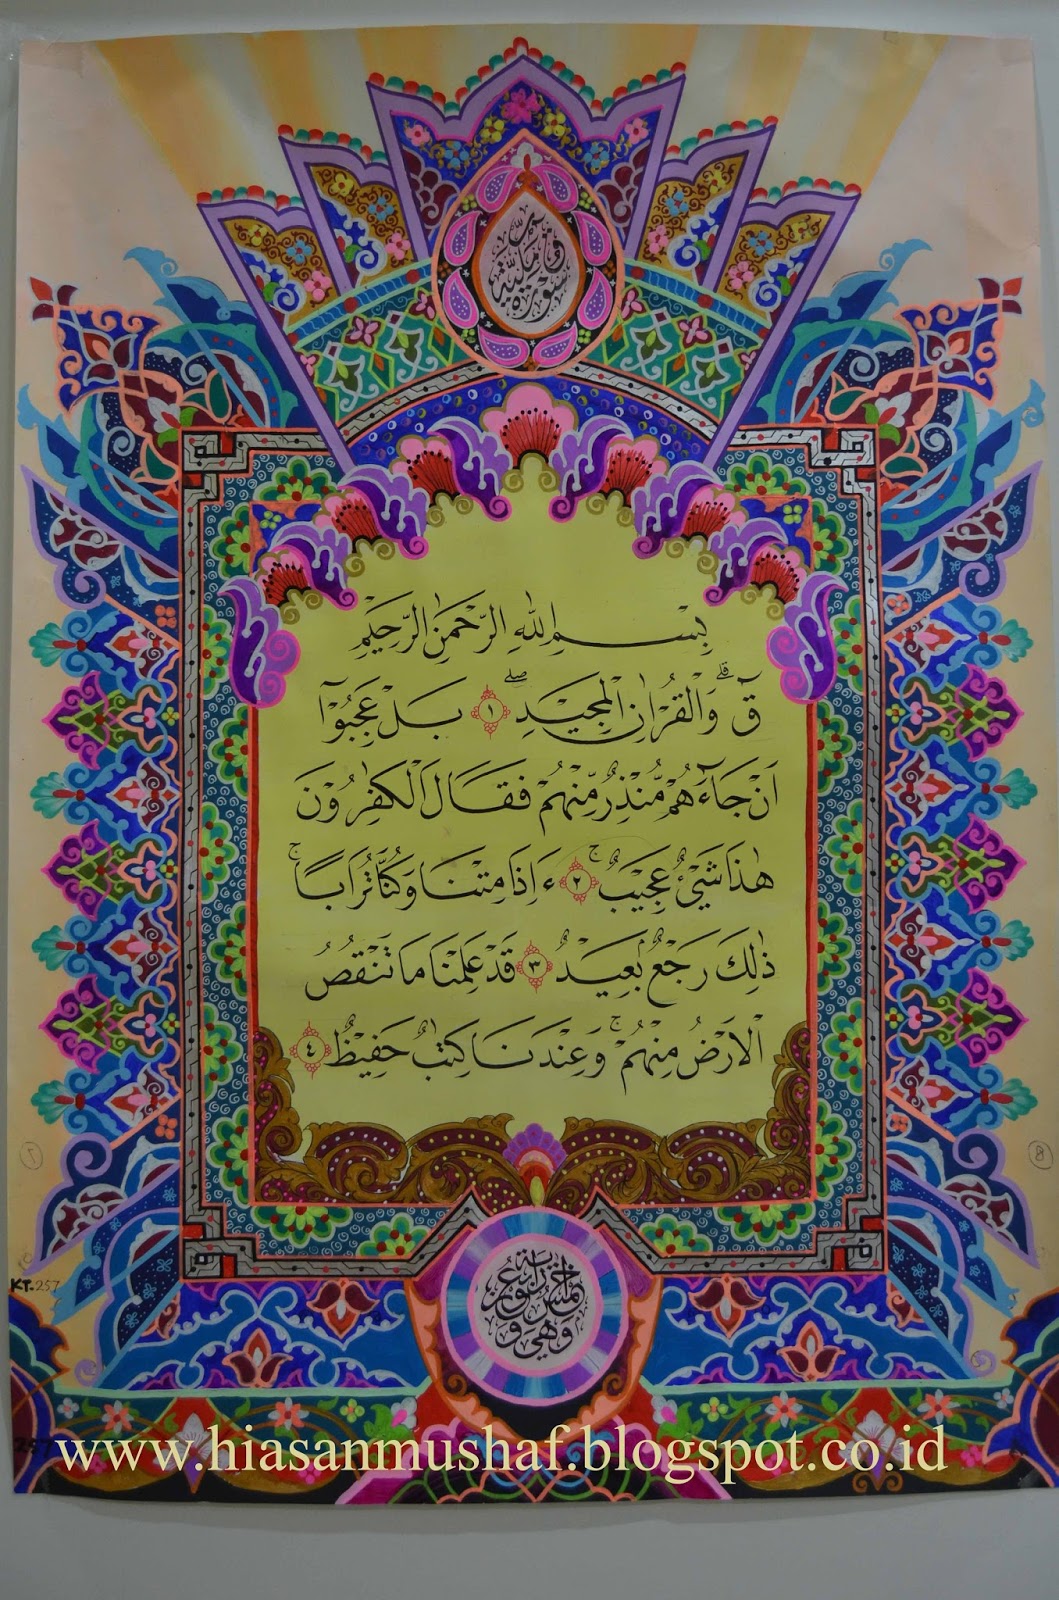 سورة ق مكية
بِسْمِ اللهِ الرَّحْمٰنِ الرَّحِيْمِ
قۤ ۗ وَالْقُرْاٰنِ الْمَجِيْدِ ۖ ١ بَلْ عَجِبُوْٓا
اَنْ جَاۤءَهُمْ مُّنْذِرٌ مِّنْهُمْ فَقَالَ الْكٰفِرُوْنَ
هٰذَا شَيْءٌ عَجِيْبٌ ۚ ٢ ءَاِذَا مِتْنَا وَكُنَّا تُرَابًا ۚ
ذٰلِكَ رَجْعٌ ۢ بَعِيْدٌ ٣ قَدْ عَلِمْنَا مَا تَنْقُصُ
الْاَرْضُ مِنْهُمْ ۚ وَعِنْدَنَا كِتٰبٌ حَفِيْظٌ ٤
وهي خمس وأربعون
8
KT.257
257
www.hiasanmushaf.blogspot.co.id